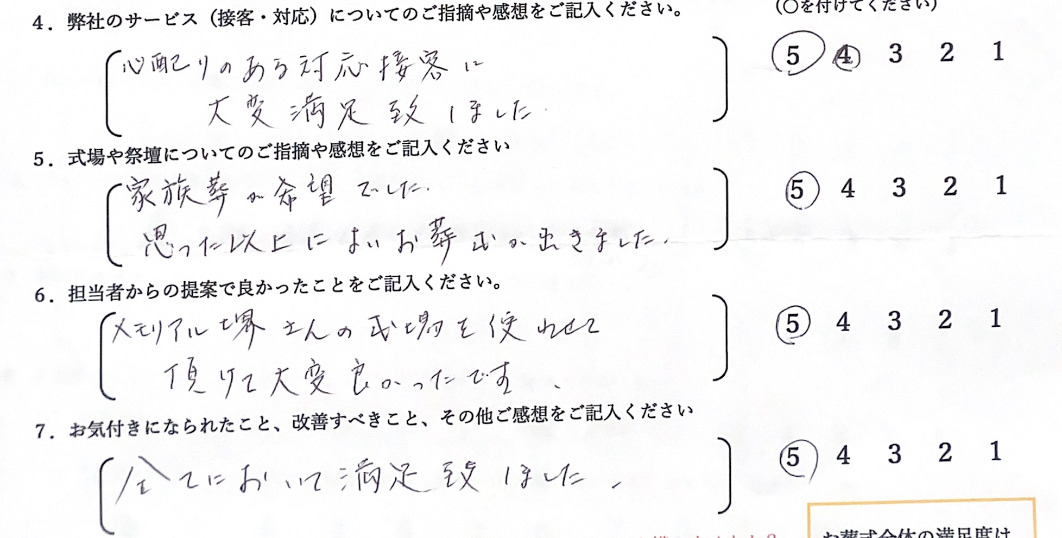 (○を付けてください)
4．弊社のサービス（接客・対応）についてのご指摘や感想をご記入ください。
心配りのある対応接客に
大変満足致しました
5 4 3 2 1
5．式場や祭壇についてのご指摘や感想をご記入ください
家族葬が希望でした。
思った以上によいお葬式が出きました。
5 4 3 2 1
6．担当者からの提案で良かったことをご記入ください。
メモリアル堺さんの式場を使わせて
頂けて大変良かったです、
5 4 3 2 1
7．お気付きになられたこと、改善すべきこと、その他ご感想をご記入ください
全てにおいて満足致しました。
5 4 3 2 1
お葬式全体の満足度は